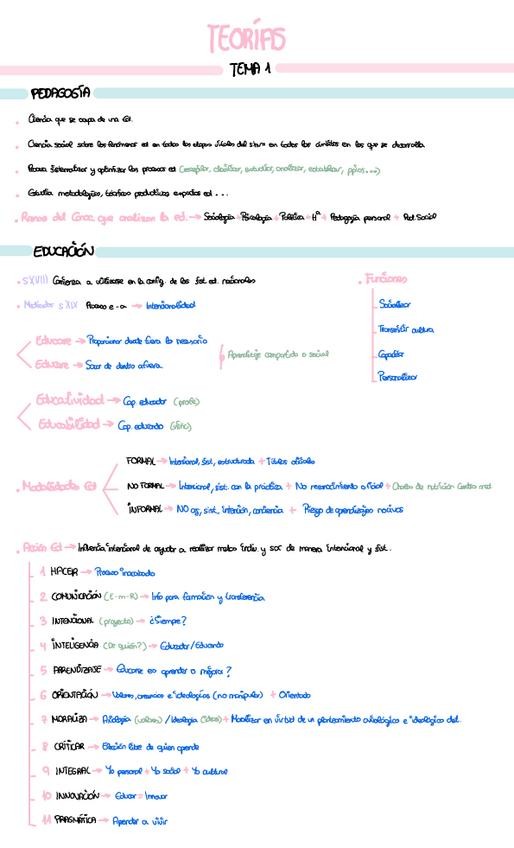 TEORÍAS
TEMA 1
PEDAGOGÍA
Ciencia que se ocupa de una Ed.
Ciencia social sobre los fenómenos ed en todas las etapas vitales del s.hvo en todos los ámbitos en los que se desarrolla
Busca sistematizar y optimizar los procesos ed (recopilar, clasificar, estudiar, analizar, establecer, ppios...)
Estudia metodologías, técnicas productivas ed ...
Ramas del Conoc. que analizan la ed. → Sociología + Psicología + Política + Hª + Pedagogía personal + Ped. Social
EDUCACIÓN
S XVIII Comienza a utilizarse en la config. de los sist. ed. nacionales
Mediados S XIX Proceso e-a → Intencionalidad
Educare → Proporcionar desde fuera lo necesario
Educere → Sacar de dentro afuera.
Aprendizaje compartido o social
Funciones
Socializar
Transmitir cultura
Capacitar
Personalizar
Educatividad → Cap. educador (profe)
Educabilidad → Cap. educando
Modalidades Ed
FORMAL → Intencional, sist, estructurada + Títulos oficiales
NO FORMAL → Intencional, sist. con la práctica + No reconocimiento oficial + Charlas de nutrición Centro med
INFORMAL → NO og, sist. intención, conciencia + Riesgo de aprendizajes nocivos
Acción Ed → Influencia intencional de ayudar a realizar metas indiv y soc de manera intencional y sist.
1 HACER → Proceso inacabado
2 COMUNICACIÓN (E-m-R) → Info para formación y transferencia
3 INTENCIONAL (proyecto) → ¿Siempre?
4 INTELIGENCIA (De quién?) → Educador/Educando
5 APRENDIZAJE → Educarse es aprender o mejorar?
6 ORIENTACIÓN → Valores, creencias e ideologías (no manipular) + Orientado
7 MORALIZA → Axiología (valores) / Ideología (ideas) + Moralizar en virtud de un planteamiento axiológico e ideológico del.
8 CRITICAR → Elección libre de quien aprende
9 INTEGRAL → Yo personal + Yo social + Yo cultural
10 INNOVACIÓN → Educar = Innovar
11 PRAGMÁTICA → Aprender a vivir